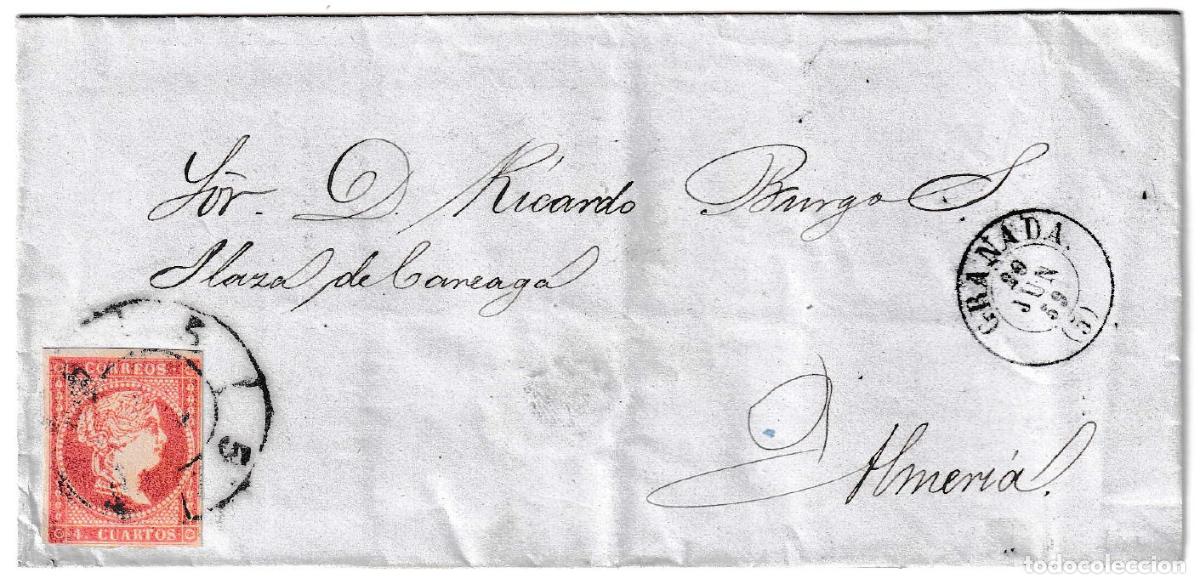 Sōr. D. Ricardo Burgo S.
Plaza de Careaga
Almería.
GRANADA.
29
JUN
59
(5)
CORREOS
4. CUARTOS
5
5
todocoleccion